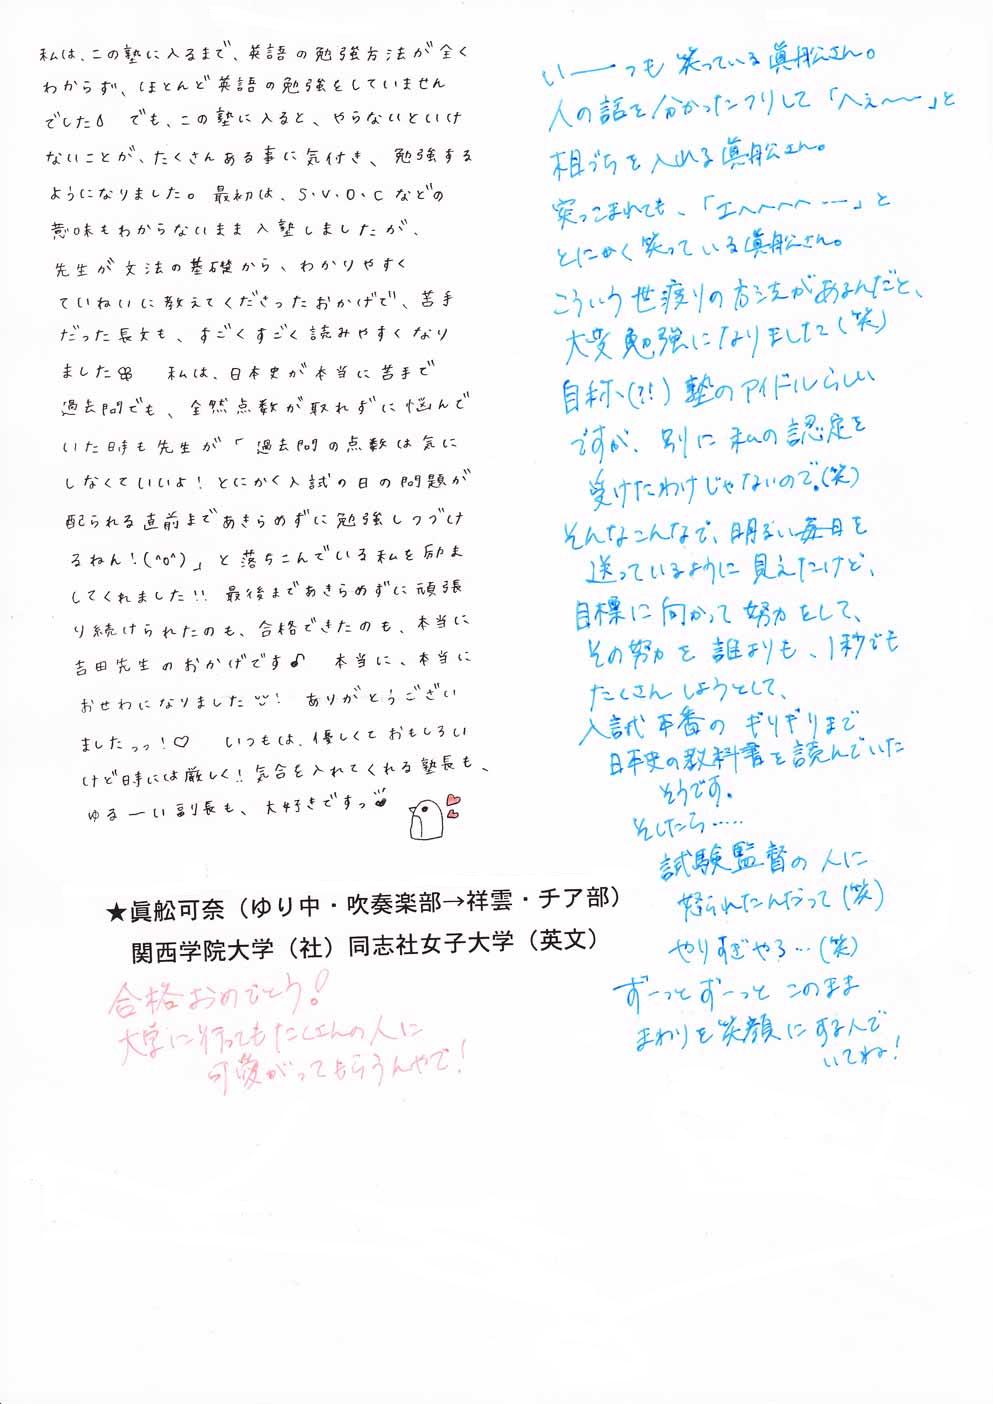 私は、この塾に入るまで、英語の勉強方法が全く
わからず、ほとんど英語の勉強をしていません
でした でも、この塾に入ると、やらないといけ
ないことが、たくさんある事に気付き、勉強する
ようになりました。最初は、S・V・O・Cなどの
意味もわからないまま入塾しましたが、
先生が文法の基礎から、わかりやすく
ていねいに教えてくださったおかげで、苦手
だった長文も、すごくすごく読みやすくなり
ました 私は、日本史が本当に苦手で
過去問でも、全然点数が取れずに悩んで
いた時も先生が「過去問の点数は気に
しなくていいよ!とにかく入試の日の問題が
配られる直前まであきらめずに勉強しつづけ
るねん!(^o^)」と落ちこんでいる私を励ま
してくれました!!最後まであきらめずに頑張
り続けられたのも、合格できたのも、本当に
吉田先生のおかげです♪ 本当に、本当に
おせわになりました! ありがとうござい
ましたっっ!♡ いつもは、優しくておもしろい
けど時には厳しく!気合を入れてくれる塾長も、
ゆるーい副長も、大好きですっ
★眞舩可奈(ゆり中・吹奏楽部→祥雲・チア部)
関西学院大学(社)同志社女子大学(英文)
合格おめでとう!
大学に行ってもたくさんの人に
可愛がってもらうんやで!
い──つも笑っている眞舩さん。
人の話を分かったフリして「へぇ〜〜」と
相づちを入れる眞舩さん。
突っこまれても、「エへへへへ……」と
とにかく笑っている眞舩さん。
こういう世渡りの方法があるんだと、
大変勉強になりました(笑)
自称、(?!)塾のアイドルらしい
ですが、別に私の認定を
受けたわけじゃないので。(笑)
そんなこんなで、明るい毎日を
送っているように見えたけど、
目標に向かって努力をして、
その努力を誰よりも、1秒でも
たくさんしようとして、
入試本番のギリギリまで
日本史の教科書を読んでいた
そうです。
そしたら……
試験監督の人に
怒られたんだって(笑)
やりすぎやろ…(笑)
ずーっとずーっとこのまま
まわりを笑顔にする人で
いてね!